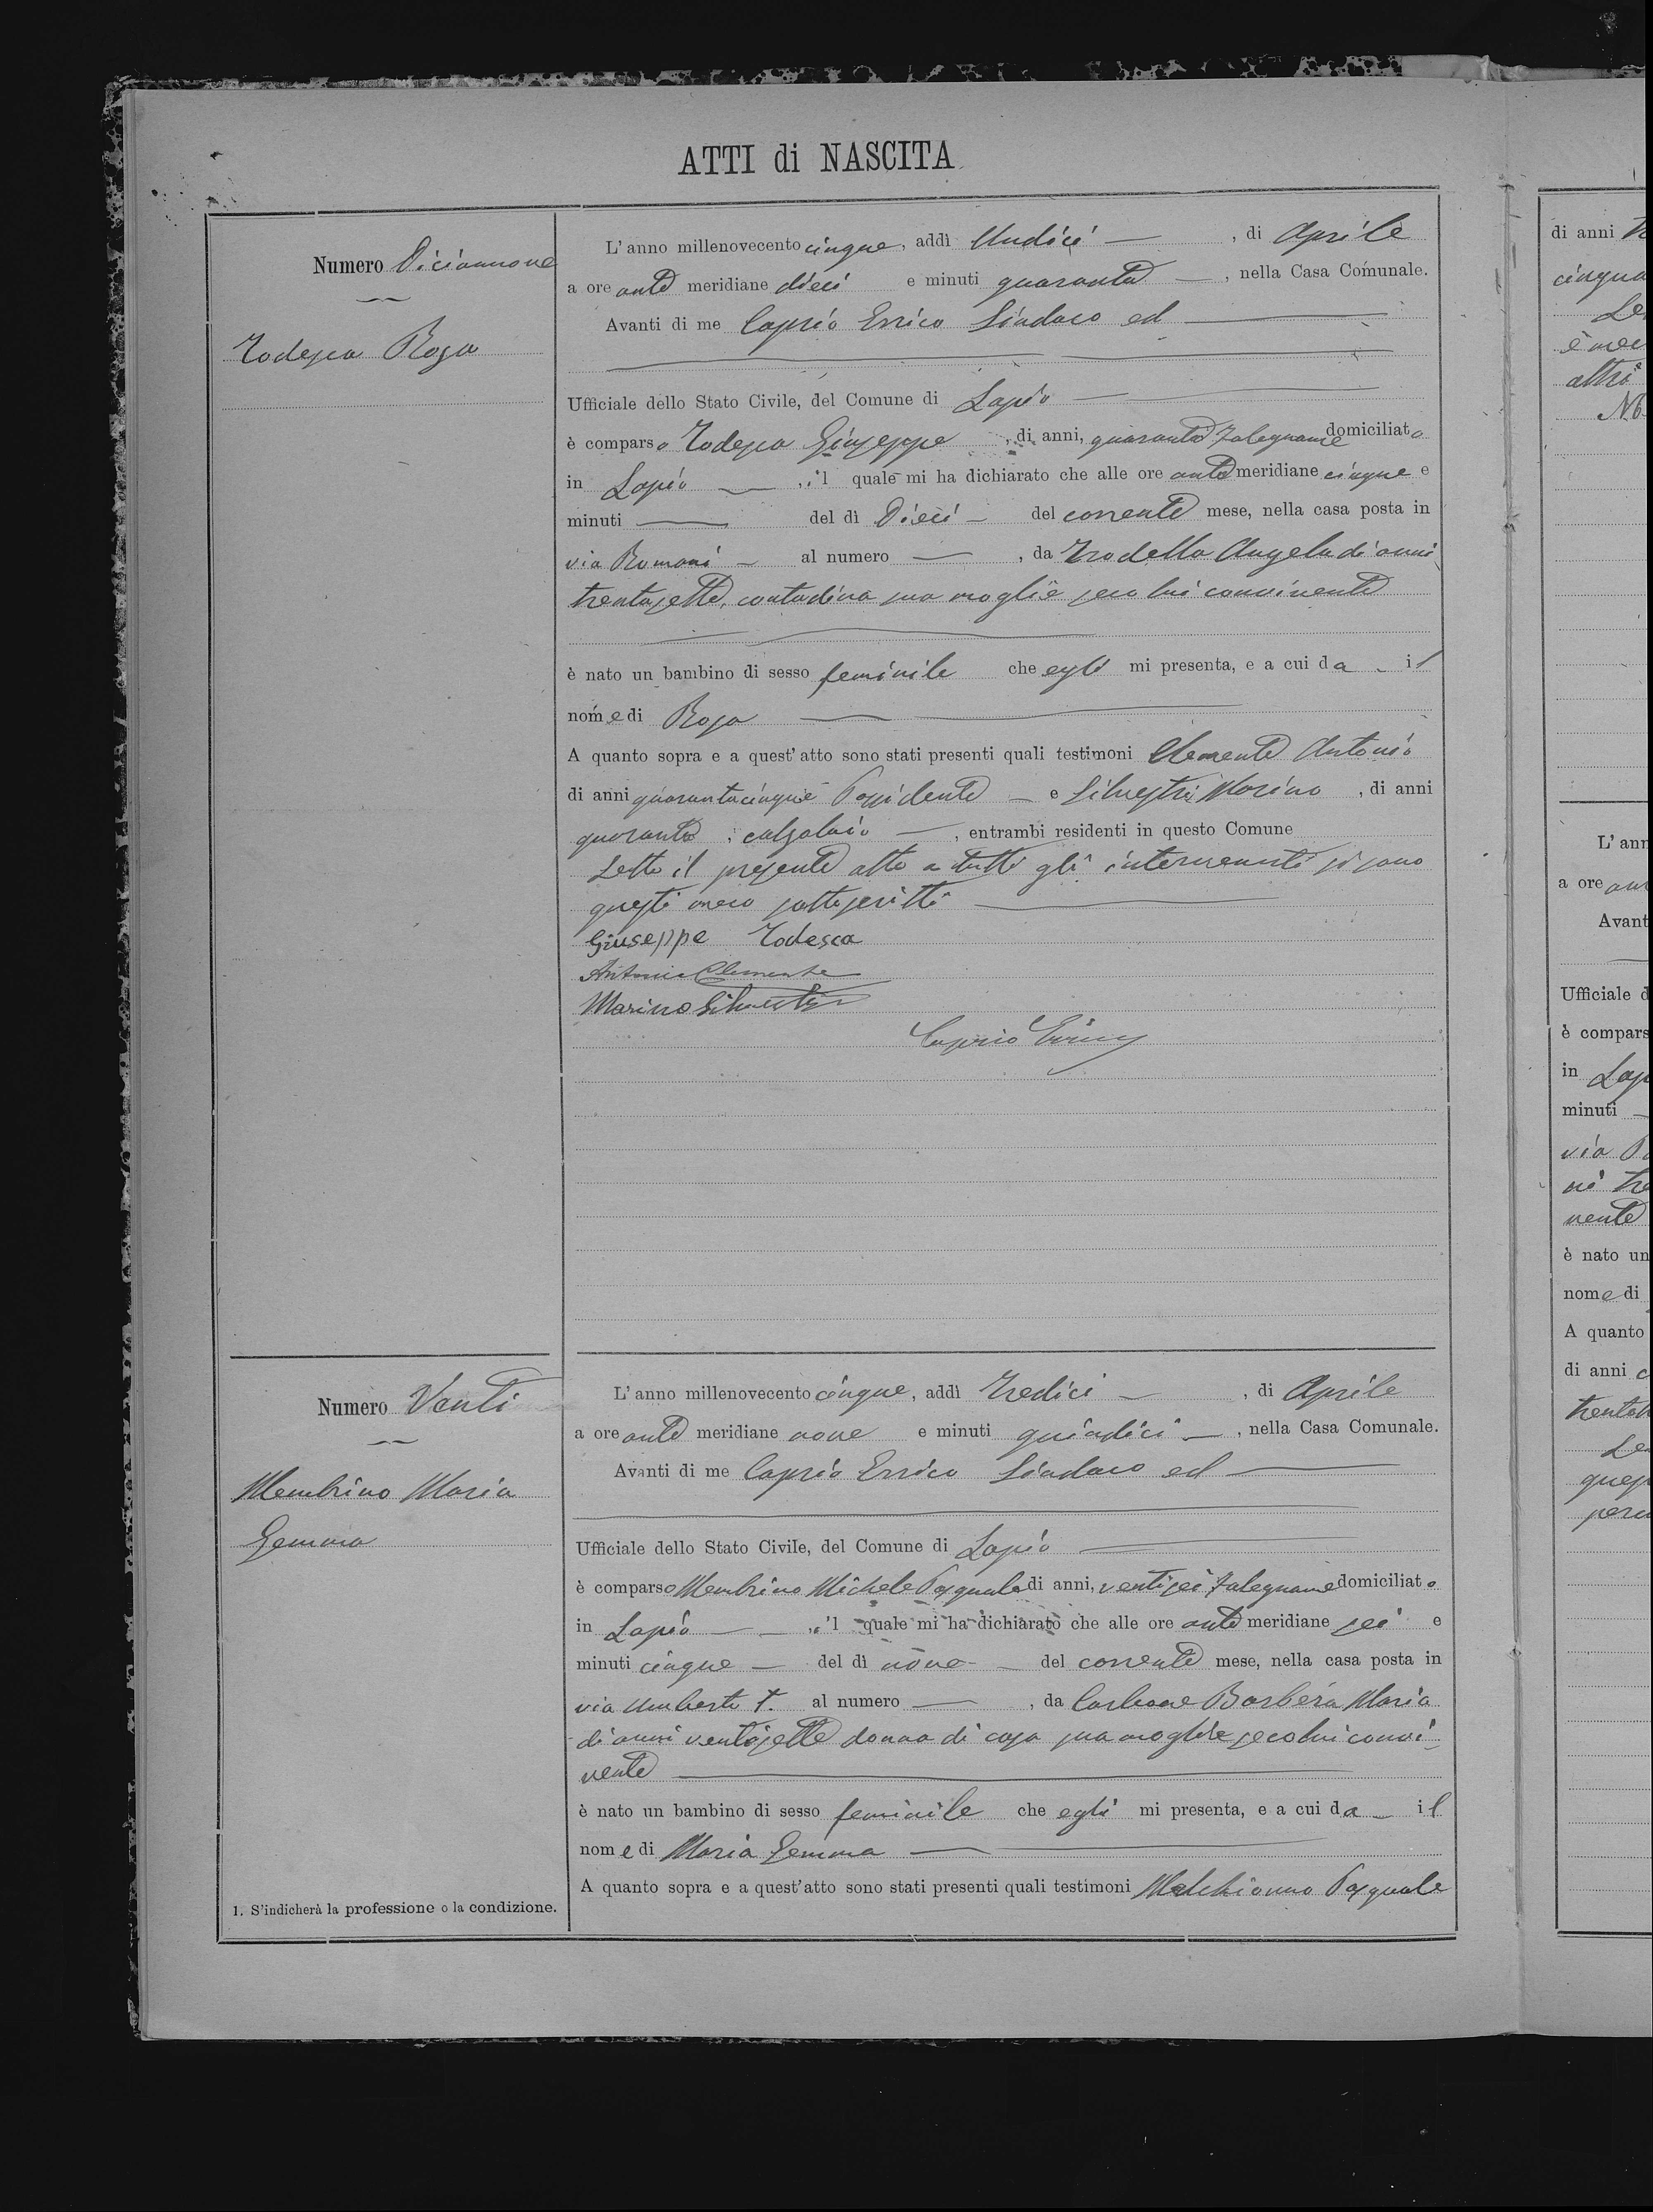 ATTI di NASCITA
Numero Diciannove
Todesca Rosa
L'anno millenovecento cinque, addì Undici —, di Aprile
a ore ante meridiane dieci e minuti quaranta —, nella Casa Comunale.
Avanti di me Caprio Errico Sindaco ed
Ufficiale dello Stato Civile, del Comune di Lapio —
è comparso Todesca Giuseppe, di anni, quaranta falegname domiciliato
in Lapio —, il quale mi ha dichiarato che alle ore ante meridiane cinque e
minuti — del dì Dieci — del corrente mese, nella casa posta in
via Romani — al numero —, da Trodella Angela di anni
trentasette, contadina sua moglie seco lui convivente
è nato un bambino di sesso feminile che egli mi presenta, e a cui da — il
nome di Rosa —
A quanto sopra e a quest'atto sono stati presenti quali testimoni Clemente Antonio
di anni quarantacinque Possidente — e Silvestri Marino, di anni
quaranta, calzolaio —, entrambi residenti in questo Comune
Letto il presente atto a tutti gli intervenuti si sono
questi meco sottoscritti —
Giuseppe Todesca
Antonio Clemente
Marino Silvestri
Caprio Errico
Numero Venti
Membrino Maria
Gemma
L'anno millenovecento cinque, addì Tredici —, di Aprile
a ore ante meridiane nove e minuti quindici —, nella Casa Comunale.
Avanti di me Caprio Errico Sindaco ed —
Ufficiale dello Stato Civile, del Comune di Lapio —
è comparso Membrino Michele Pasquale di anni, ventisei falegname domiciliato
in Lapio — —, il quale mi ha dichiarato che alle ore ante meridiane sei e
minuti cinque — del dì nove — del corrente mese, nella casa posta in
via Umberto I. al numero —, da Carbone Barbera Maria
di anni ventisette donna di casa sua moglie seco lui convi-
vente —
è nato un bambino di sesso feminile che egli mi presenta, e a cui da — il
nome di Maria Gemma —
A quanto sopra e a quest'atto sono stati presenti quali testimoni Melchionno Pasquale
1. S'indicherà la professione o la condizione.
di anni
cinqua
altri
L'ann
a ore
Avant
Ufficiale d
è compars
in Lap
minuti
via
vente
è nato un
nome di
A quanto
di anni